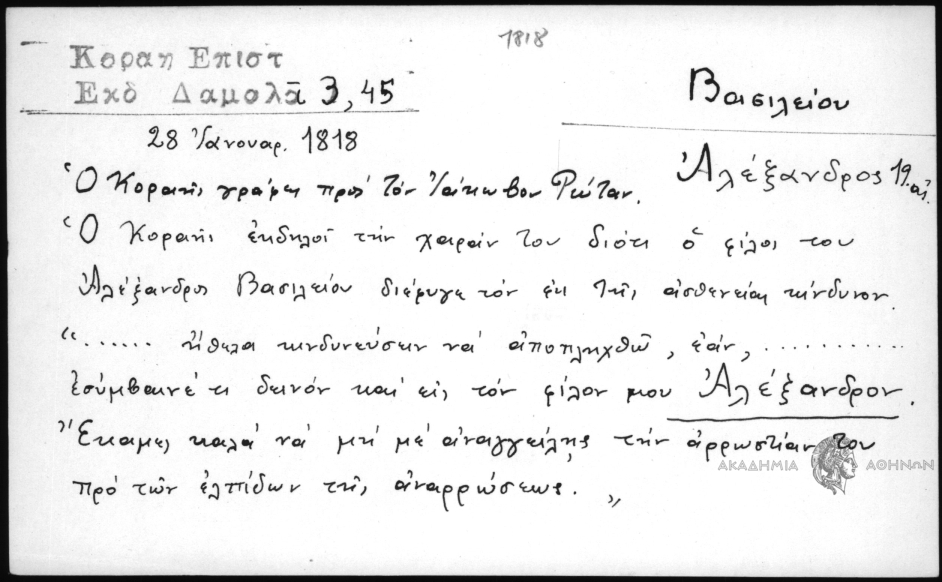 1818
Κοραη Επιστ
Εκδ Δαμολᾶ 3, 45
Βασιλείου
28 Ἰανουαρ. 1818
Ἀλέξανδρος 19. αἰ.
Ὁ Κοραῆς γράφει πρὸς τὸν Ἰάκωβον Ρώταν.
Ὁ Κοραῆς ἐκδηλοῖ τὴν χαράν του διότι ὁ φίλος του
Ἀλέξανδρος Βασιλείου διέφυγε τὸν ἐκ τῆς ἀσθενείας κίνδυνον.
"...... ἤθελα κινδυνεύσειν νὰ ἀποπληχθῶ, ἐάν, ............
ἐσύμβαινέ τι δεινόν καὶ εἰς τὸν φίλον μου Ἀλέξανδρον.
Ἔκαμες καλὰ νὰ μή μὲ ἀναγγείλῃς τὴν ἀρρωστίαν του
πρὸ τῶν ἐλπίδων τῆς ἀναρρώσεως. "
ΑΚΑΔΗΜΙΑ ΑΘΗΝΩΝ